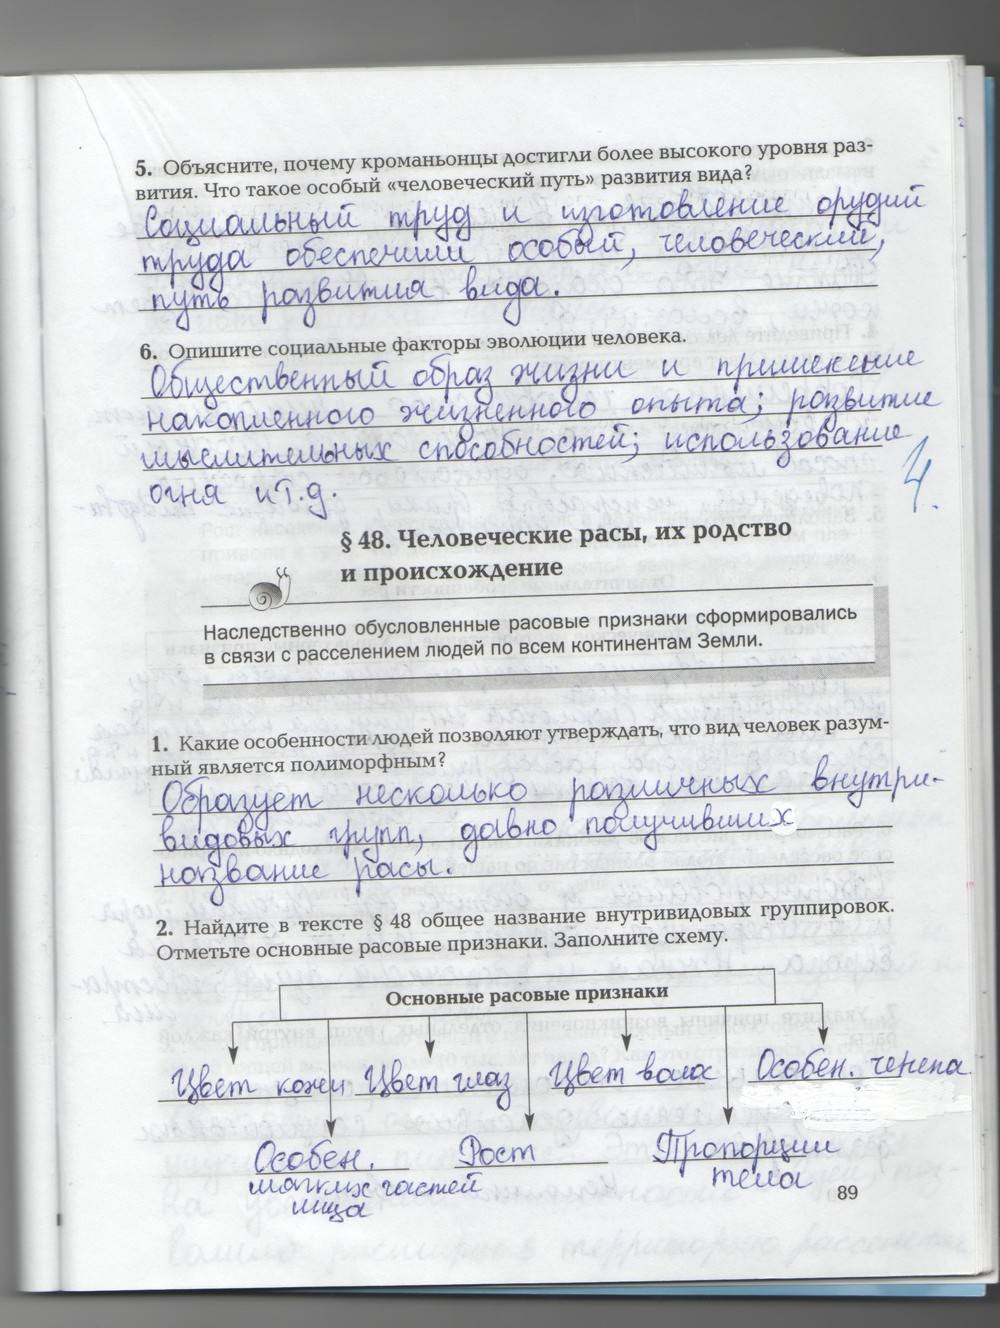 5. Объясните, почему кроманьонцы достигли более высокого уровня раз-
вития. Что такое особый «человеческий путь» развития вида?
Социальный труд и изготовление орудий
труда обеспечили особый, человеческий,
путь развития вида.
6. Опишите социальные факторы эволюции человека.
Общественный образ жизни и применение
накопленного жизненного опыта; развитие
мыслительных способностей; использование
огня и т.д.
4.
§ 48. Человеческие расы, их родство
и происхождение
Наследственно обусловленные расовые признаки сформировались
в связи с расселением людей по всем континентам Земли.
1. Какие особенности людей позволяют утверждать, что вид человек разум-
ный является полиморфным?
Образует несколько различных внутри-
видовых групп, давно получивших
название расы.
2. Найдите в тексте § 48 общее название внутривидовых группировок.
Отметьте основные расовые признаки. Заполните схему.
Основные расовые признаки
Цвет кожи Цвет глаз Цвет волос Особен. черепа
Особен. Рост Пропорции
мягких частей тела
лица
89